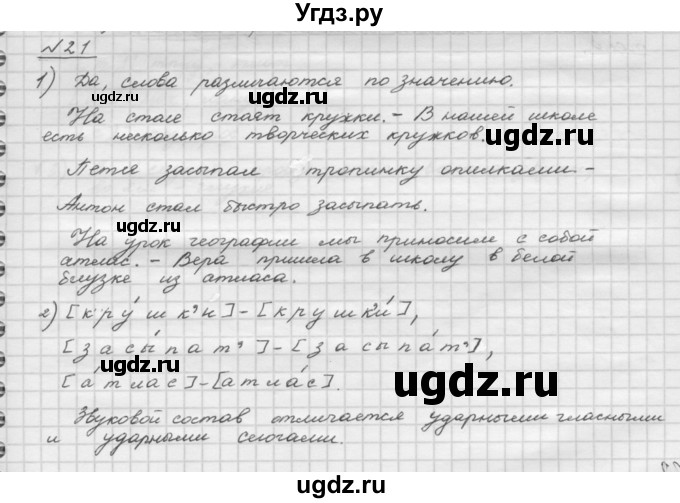 Угдз.ру
№21
1) Да, слова различаются по значению.
На столе стоят кружки. - В нашей школе
есть несколько творческих кружков.
ugdz.ru
ugdz.ru
Петя засыпал тропинку опилками -
Антон стал быстро засыпать.
ugdz.ru
ugdz.ru
На урок географии мы приносим с собой
атлас. - Вера пришла в школу в белой
блузке из атласа.
ugdz.ru
2) [кру́шк'и] - [крушк'и́],
[засы́пат'] - [засыпа́т'],
[а́тлас] - [атла́с].
ugdz.ru
ugdz.ru
Звуковой состав отличается ударными гласными
и ударными слогами.
ugdz.ru